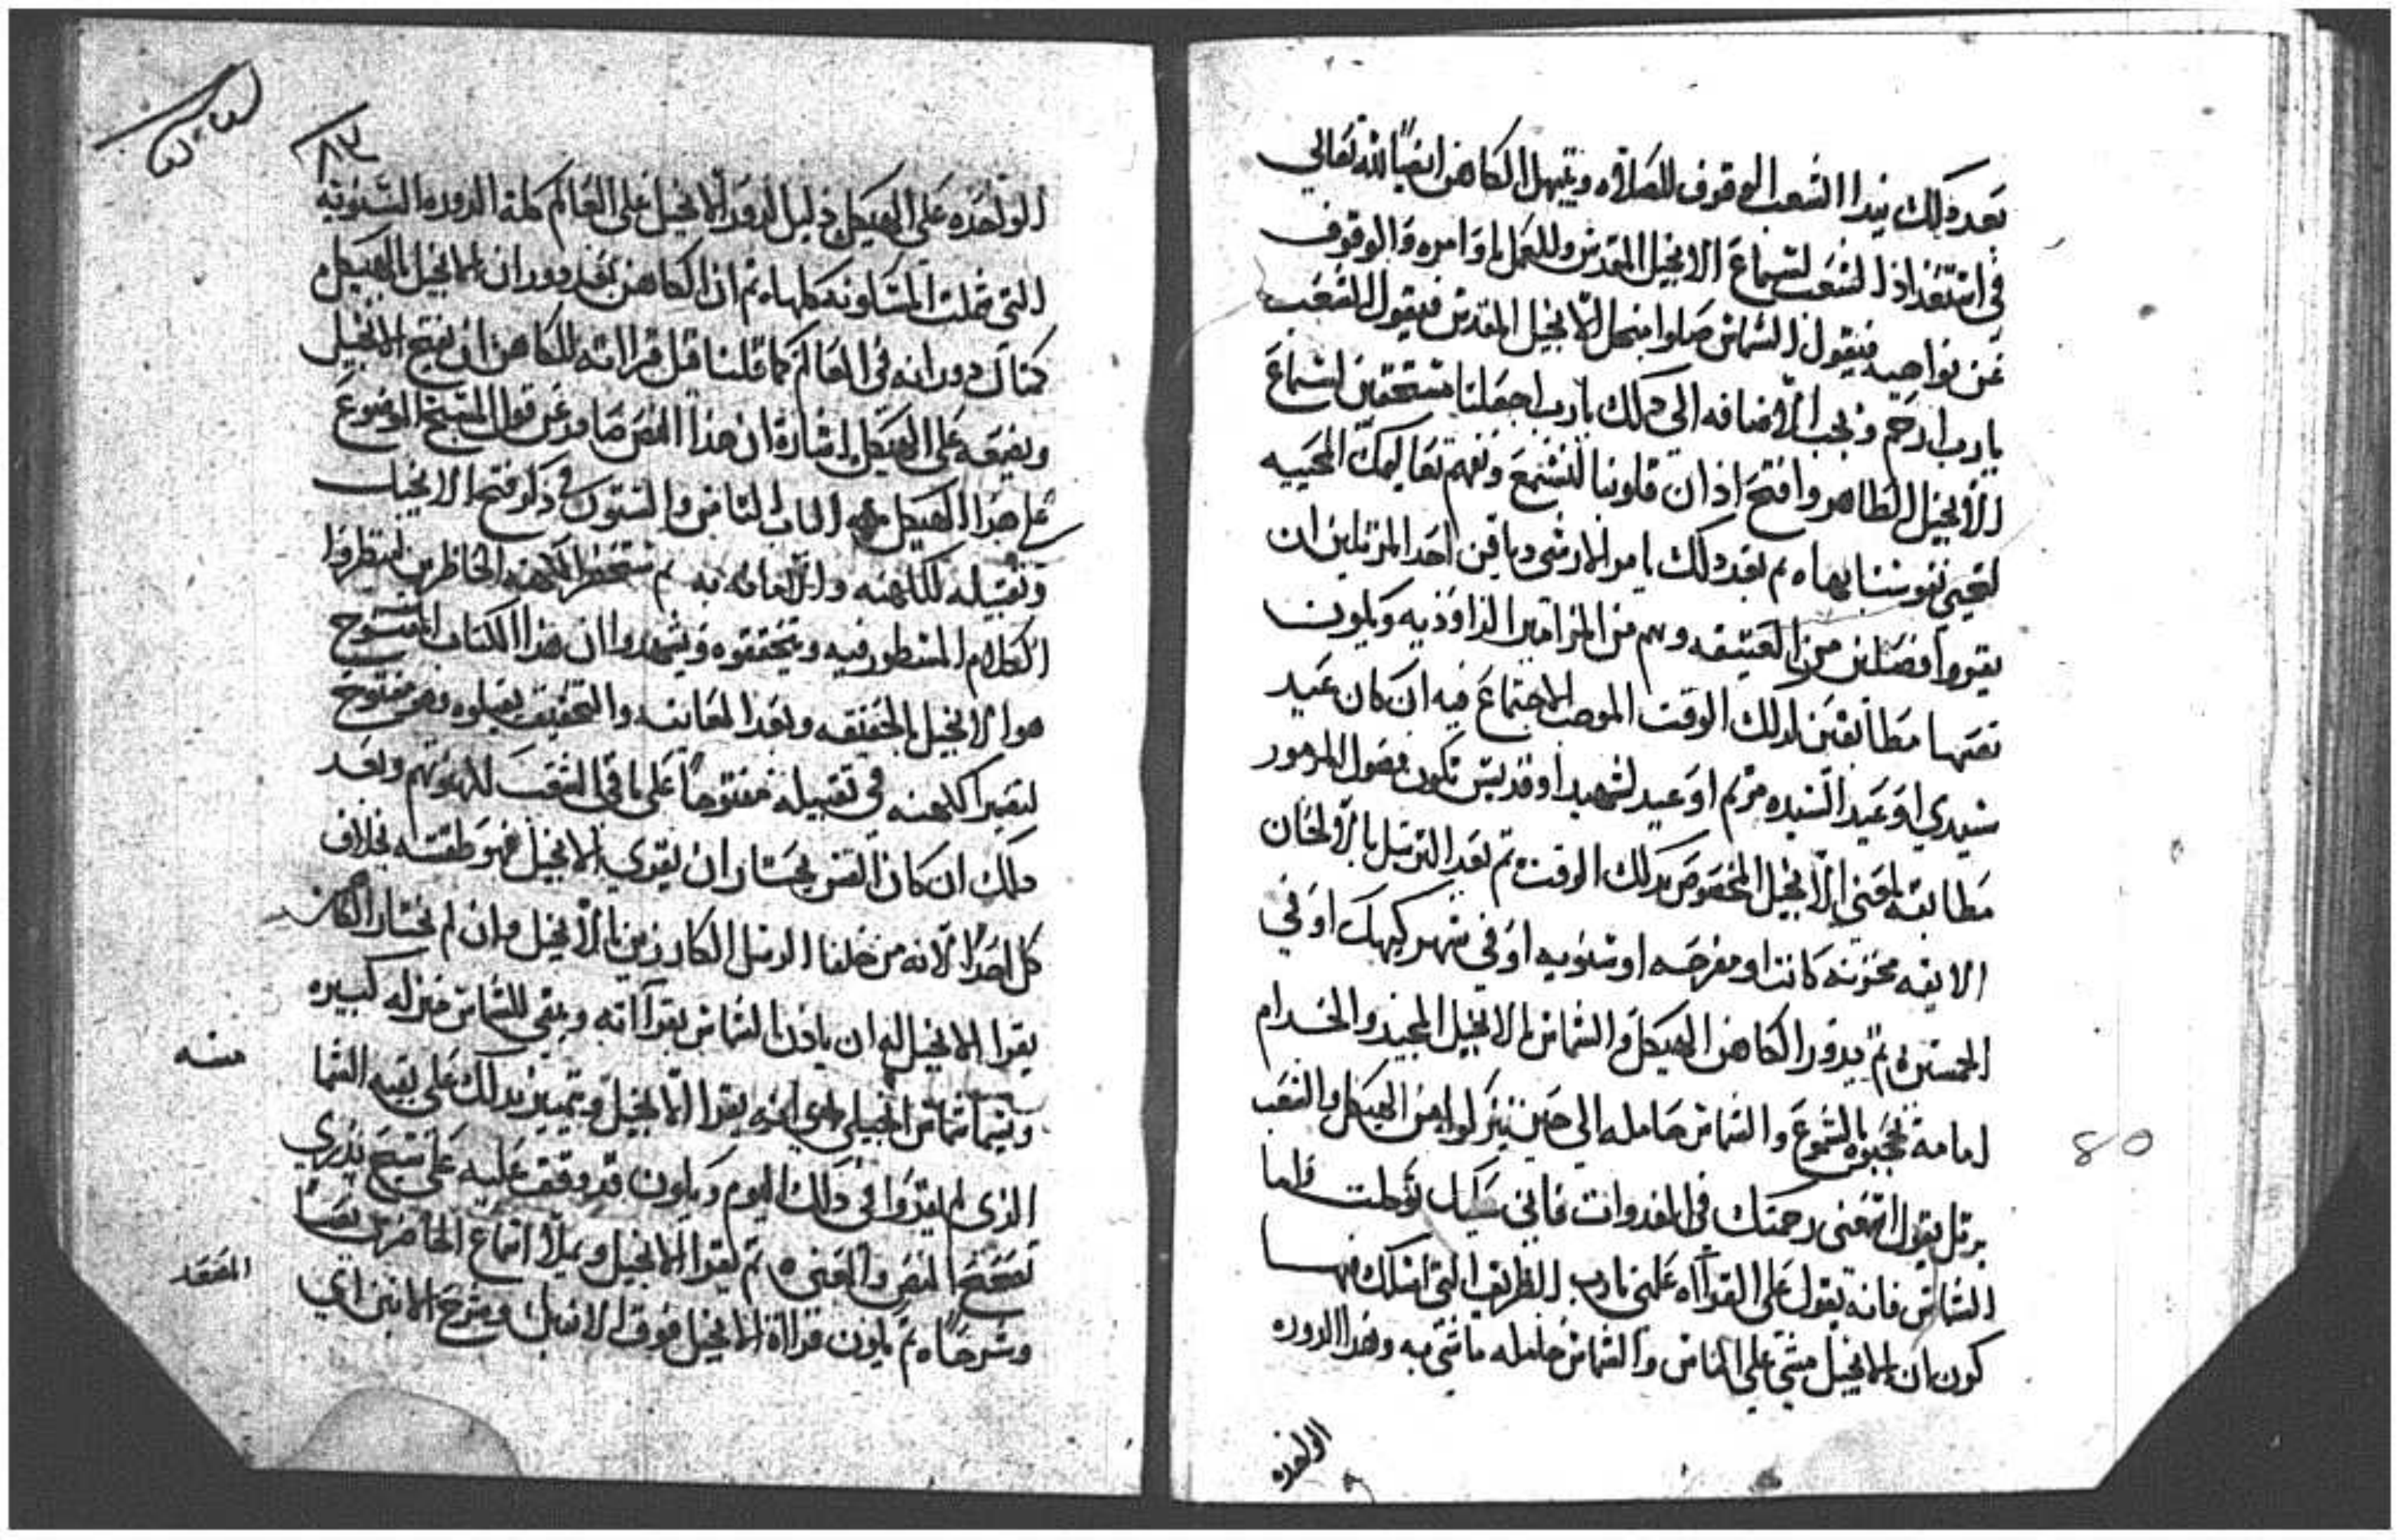 بعد ذلك يبدا الشعب الوقوف للصلاه ويبتهل الكاهن ايضاً لله تعالي
في استعداد الشعب لسماع الانجيل المقدس وللعمل باوامره والوقوف
عن نواهيه فيقول الشماس صلوا من اجل الانجيل المقدس فيقول الشعب
يارب ارحم ويجب الاضافه الي ذلك يارب اجعلنا مستحقين لسماع
الانجيل الطاهر وافتح اذان قلوبنا لنسمع ونفهم تعاليمك المحييه
لتحيي نفوسنا بها ثم بعد ذلك يامر الارشي دياقن احد المرتلين ان
يقروا فصلين من العتيقه وهم من المزامير الداوديه ويكون
نصها مطابقين لذلك الوقت الموجب الاجتماع فيه ان كان عيد
سيدي او عيد السيده مريم او عيد لشهيد او قديس تكون فصول المزمور
مطابقه لمعني الانجيل المخصوص بذلك الوقت ثم بعد الترتيل بالالحان
الايقه محزنه كانت او مفرحه او سنويه او في شهر كيهك او في
الخمسين ثم يدور الكاهن الهيكل والشماس بالانجيل المجيد والخدام
امامه بالشموع والشماس حامله الي حين ينزلوا من الهيكل والشعب
يرتل بقول رحمتك في الغدوات فاني عليك توكلت واما
الشماس فانه يقول علي القراه علمني يارب الطريق التي اسلك فيها
كون ان الانجيل مشي علي الناس والشماس حامله ماشي به وهذا الدوره
الواحده
80
٨٣
الواحده علي الهيكل دليل لدور الانجيل علي العالم كله الدوره السنويه
التي شملت المسكونه كلها ثم ان الكاهن بعد دوران الانجيل بالهيكل
كمثال دورانه في العالم كما قلنا قبل قرااته للكاهن ان يفتح الانجيل
ويضعه علي الهيكل اشارة ان هذا النص صادر عن قول المسيح الموضوع
علي هذا الهيكل الباب الثامن والستون في ذكر فتح الانجيل
وتقبيله للكهنه والعامه به ثم تتحضر الكهنه الحاظرين لينظروا
الكلام المسطور فيه ويتحققوه ويشهدوا ان هذا الكتاب المشروح
هو الانجيل بالحقيقه وبعد المعاينه والتحقيق يقبلوه وهو مفتوح
الكهنه في تقبيله مفتوحاً علي باقي الشعب وبعد
ذلك ان كان القس يختار ان يقري الانجيل فهو طقسه بخلاف
كل احد لانه من خلفا الرسل الكارزين بالانجيل وان لم يختار الكاهن
يقرا الانجيل له ان ياذن الشماس بقراآته ويبقي للشماس منزله كبيره
منه
ويسما شماس انجيلي يقرا الانجيل ويتميز بذلك علي بقيه الشما
الذي لم يقروا في ذلك اليوم ويكون قد وقف عليه علي شيخ يدري
تصحيح النص والمعني ثم يقرا الانجيل ويملأ اسماع الحاضرين نصاً
المقعد
وشرحاً ثم يكون قراءة الانجيل فوق الانبل